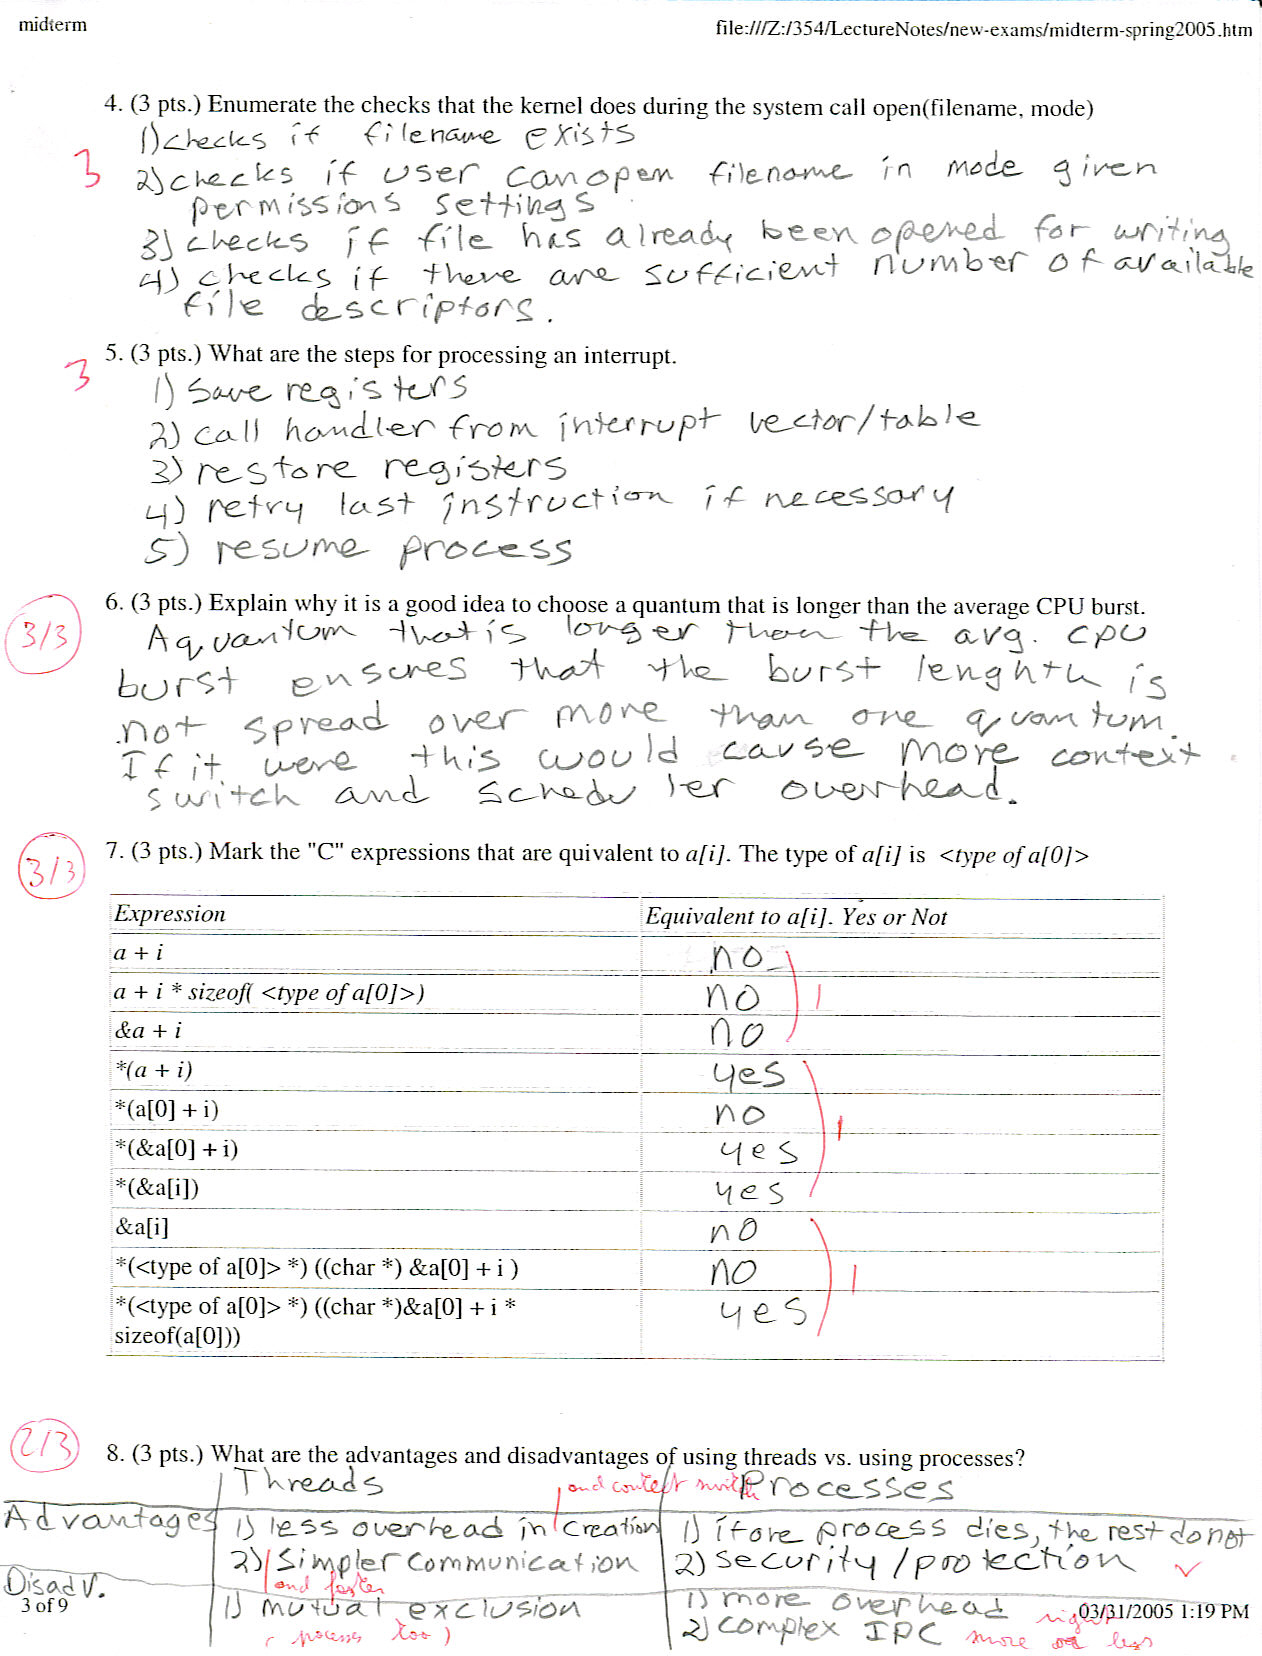 midterm
file:///Z:/354/LectureNotes/new-exams/midterm-spring2005.htm
4. (3 pts.) Enumerate the checks that the kernel does during the system call open(filename, mode)
1) checks if filename exists
3
2) checks if user can open filename in mode given
permissions settings
3) checks if file has already been opened for writing
4) checks if there are sufficient number of available
file descriptors.
5. (3 pts.) What are the steps for processing an interrupt.
3
1) Save registers
2) call handler from interrupt vector/table
3) restore registers
4) retry last instruction if necessary
5) resume process
6. (3 pts.) Explain why it is a good idea to choose a quantum that is longer than the average CPU burst.
3/3
A quantum that is longer than the avg. CPU
burst ensures that the burst lenghth is
not spread over more than one quantum.
If it were this would cause more context
switch and scheduler overhead.
7. (3 pts.) Mark the "C" expressions that are quivalent to a[i]. The type of a[i] is <type of a[0]>
3/3
Expression Equivalent to a[i]. Yes or Not
a + i no
a + i * sizeof( <type of a[0]>) no 1
&a + i no
*(a + i) yes
*(a[0] + i) no 1
*(&a[0] + i) yes
*(&a[i]) yes
&a[i] no
*(<type of a[0]> *) ((char *) &a[0] + i ) no 1
*(<type of a[0]> *) ((char *)&a[0] + i * yes
sizeof(a[0]))
2/3
8. (3 pts.) What are the advantages and disadvantages of using threads vs. using processes?
Threads and context switch Processes
Advantages 1) less overhead in creation 1) if one process dies, the rest do not
2) Simpler communication 2) security/protection
and faster
Disadv. 1) mutual exclusion 1) more overhead
3 of 9 03/31/2005 1:19 PM
(processes too) 2) complex IPC more or less